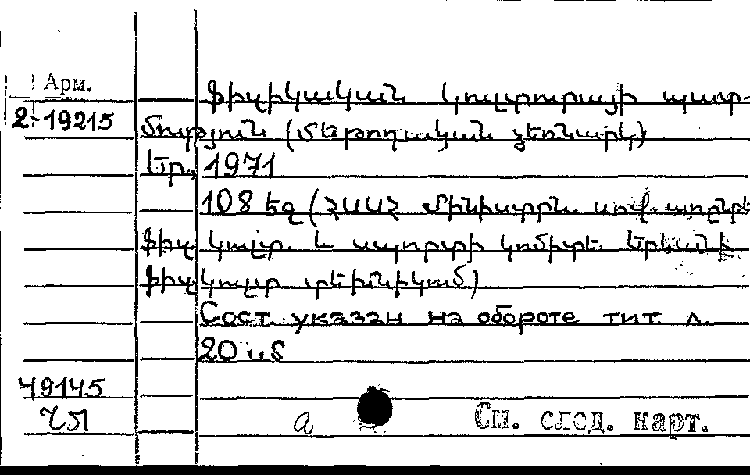 Арм.
2-19215
Ֆիզիկական կուլտուրայի պատ-
մություն (մեթոդական ձեռնարկ)
Եր., 1971
108 եզ (ՀՍՍՀ Մինիստրն. սով. առընթ
ֆիզ կուլտ. և սպորտի կոմիտե. Երևանի
ֆիզ կուլտ տեխնիկում)
Сост. указан на обороте тит. л.
20
49145
а
См. след. карт.